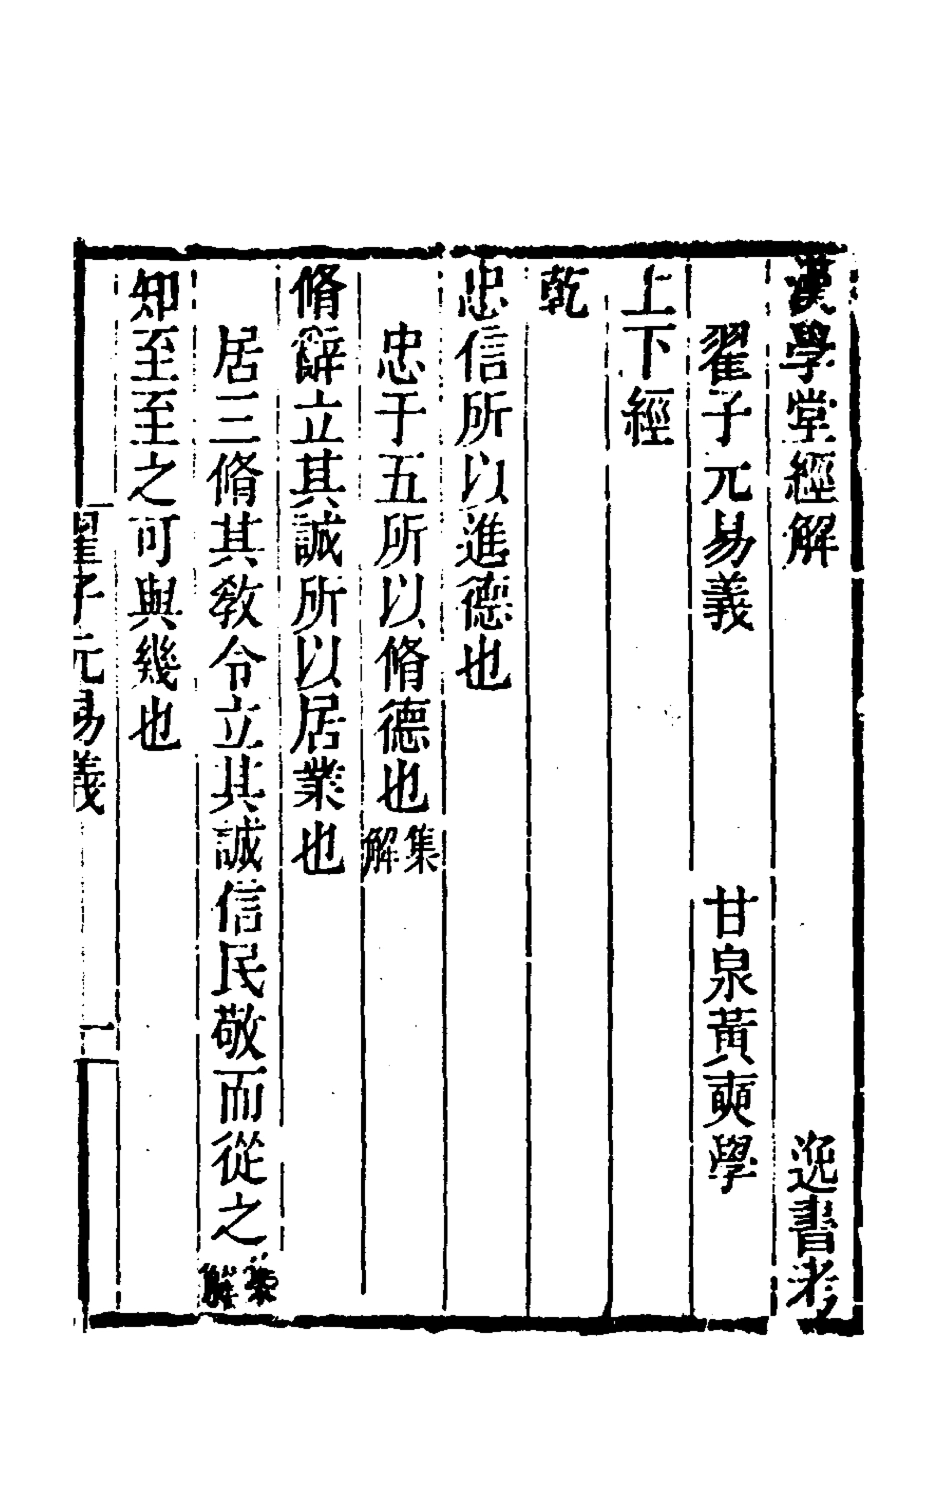 漢學堂經解 逸書考
翟子元易義 甘泉黃奭學
上下經
乾
忠信所以進德也
忠于五所以脩德也集解
脩辭立其誠所以居業也
居三脩其敎令立其誠信民敬而從之集解
知至至之可與幾也
翟子元易義 一